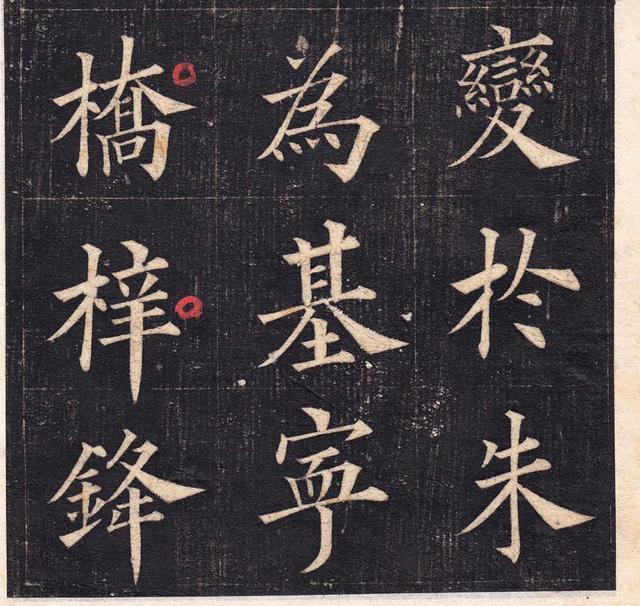 變於朱
為基寧
橋梓鋒